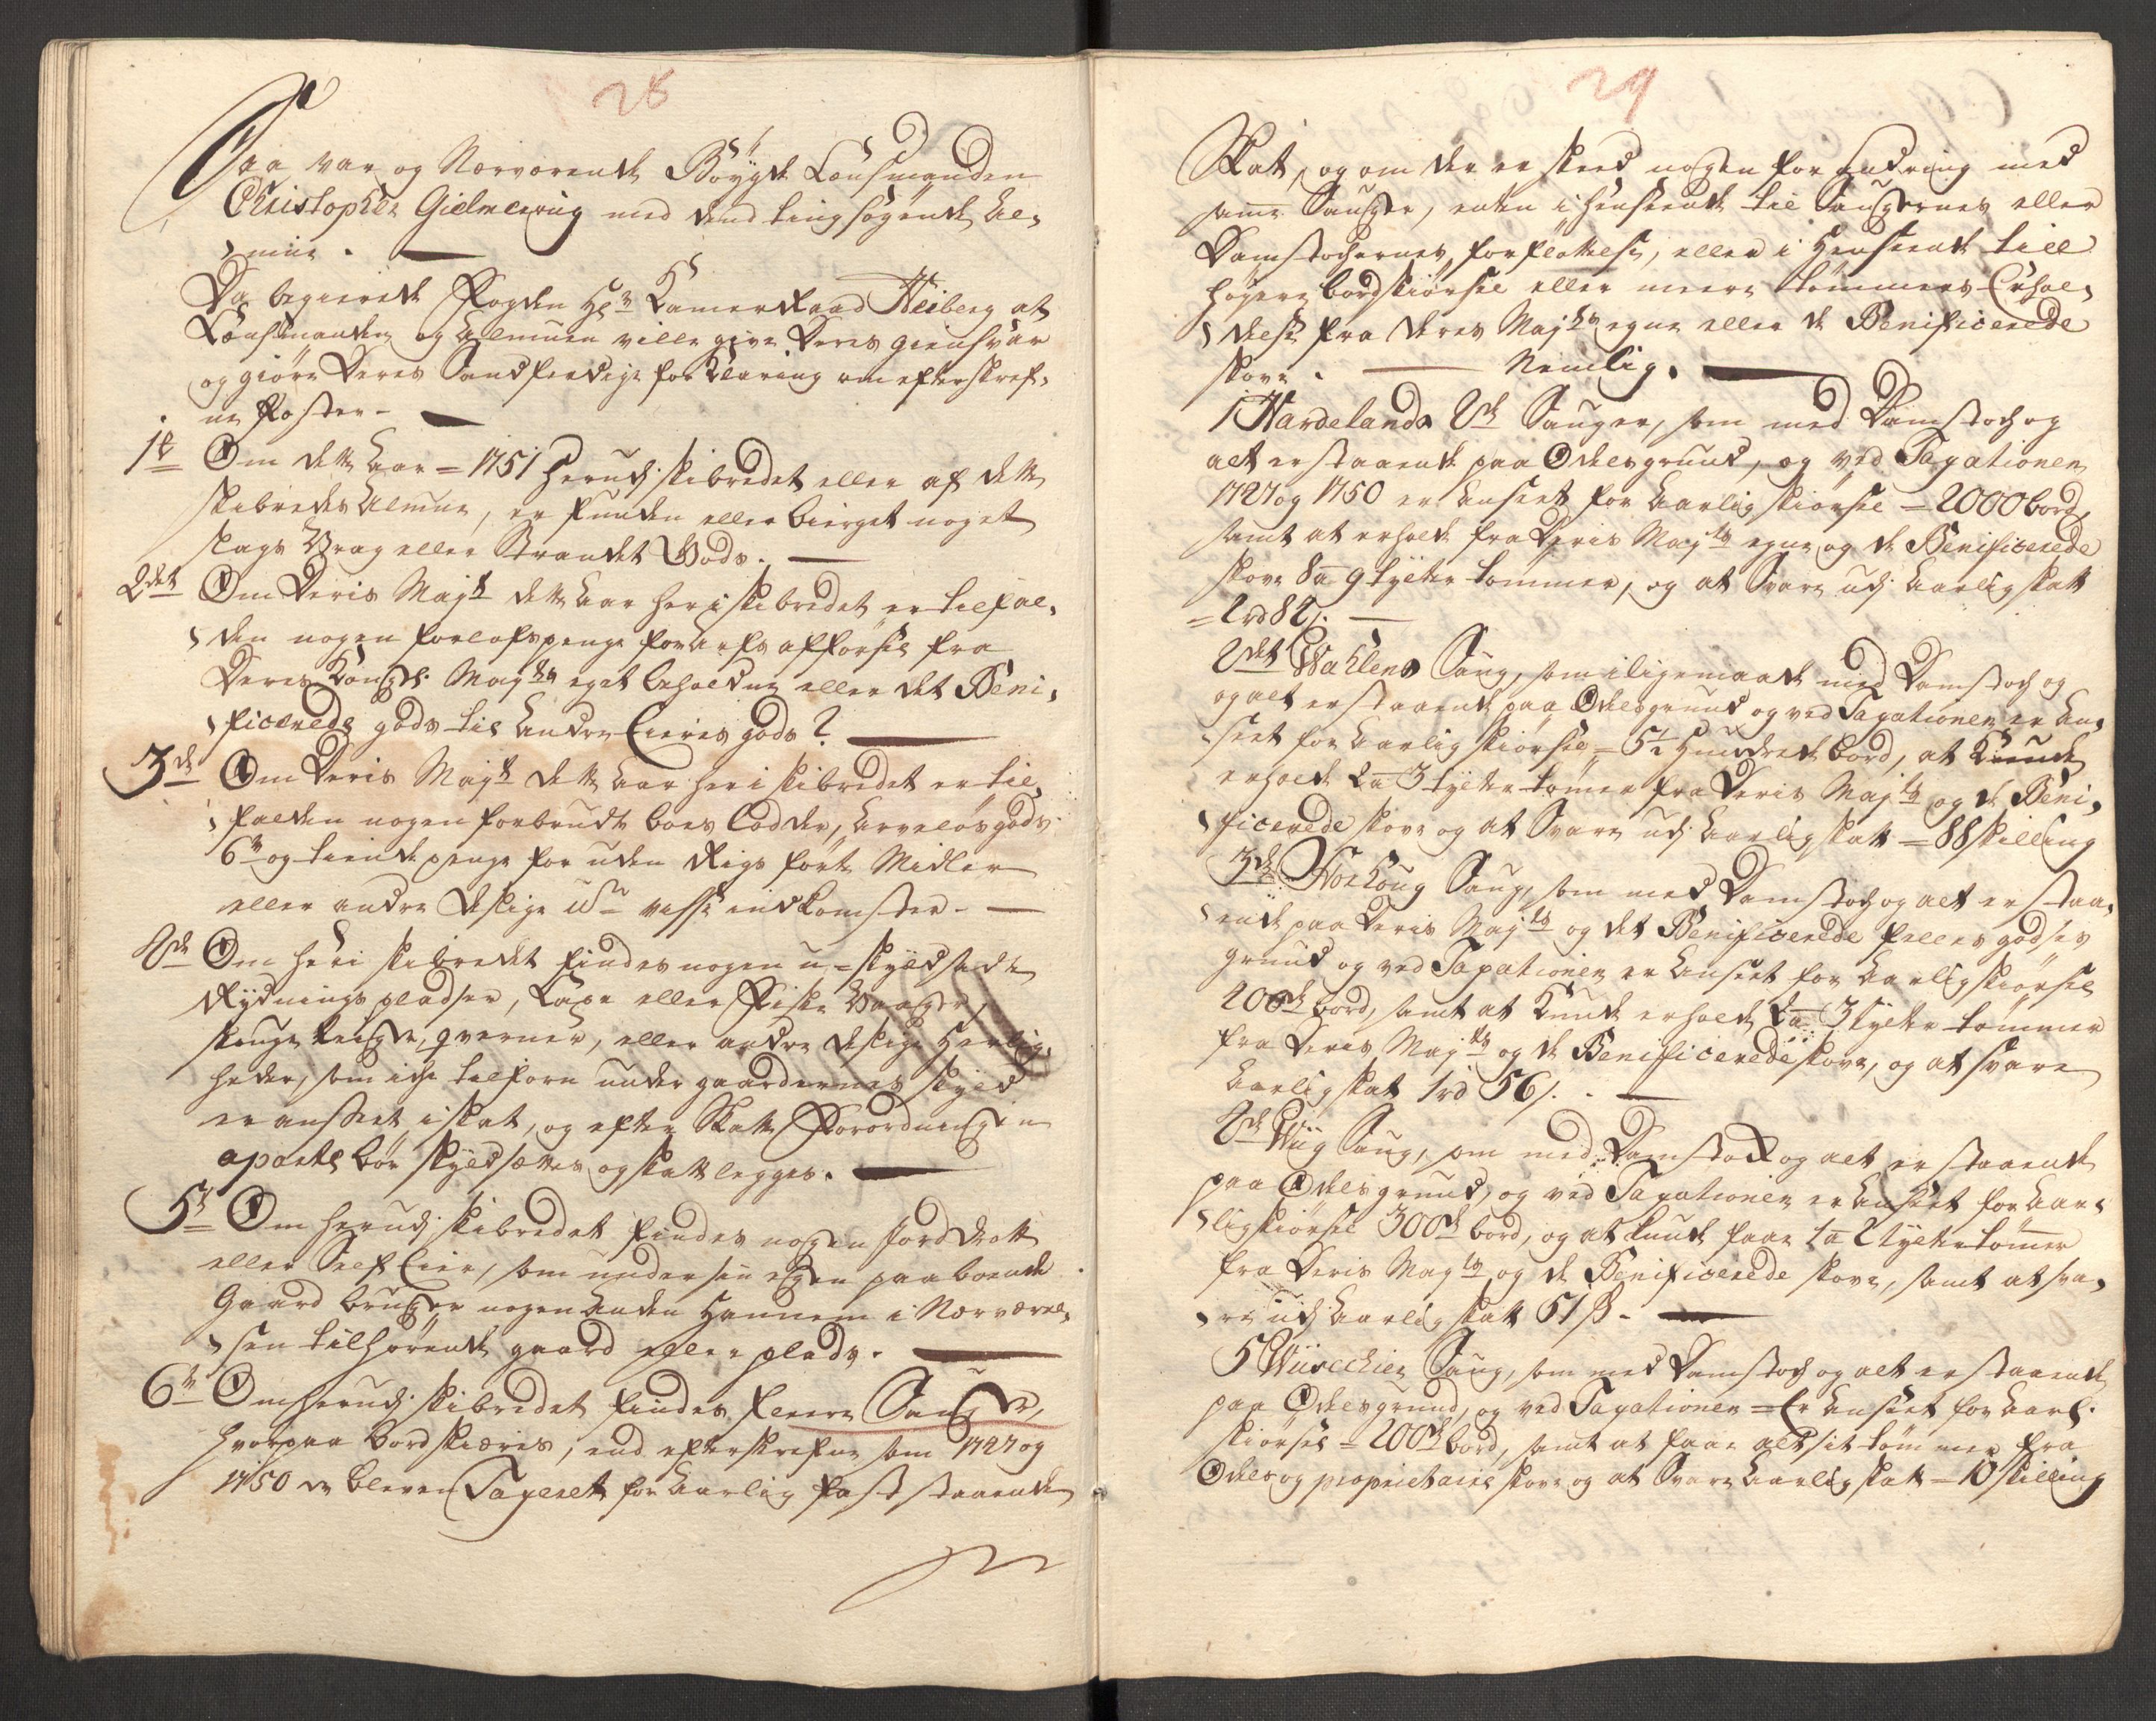 28
Saa var og Nerværende Böygde Lensmanden
Christopher Gielmeroug med dend tingsøgende Al-
mue.
Da begierede Fogden Hr Kamerraad Heiberg at
Lensmanden og Almuen ville give Deres giensvar
og giöre Deres Sandferdige forklaring om efterskref-
ne Poster.
1t Om dette Aar 1751 herudj skibredet eller af dette
skibredes Almue, er funden eller bierget noget
slags Vrag eller Strandet Gods.
2det Om Deris Majt dette Aar her i skibredet er tilfal-
den nogen forlofspenge for arfs afförsel fra
Deres Kongl. Majts eget beholdne eller det Beni-
ficerede gods til andre Eieris gods?
3de Om Deris Majt dette Aar her i skibredet er til-
falden nogen forbrudt boes Lodder, arveløs gods
6te og tiende penge for uden Rigs förte Midler
eller andre deslige uvisse indkomster.
4de Om her i skibredet findes nogen u-skyldsadte
Rydnings pladser, Laxe eller Fiske Vaager,
qverner, eller andre deslige Herlig-
heder, som iche tilforn under gaardernes skyld
er ansseet i skat, og efter Skatte Forordningen
aparte bör skyldsættes og skatlegges.
5te Om herudj skibredet findes nogen Jorddrott
eller Self Eier, som under sin egen paaboende
Gaard bruger nogen anden Hannem i Nerværel-
sen tilhørende gaard eller plads.
6te Om herudj skibredet findes fleere Sauger,
hvorpaa bord skieris, end efterskrefne som 1727 og
1750 er bleven Taxeret for Aarlig fast staaende
29
Skat, og om der er skeed nogen forandring med
samme Sauger, enten i henseende til Saugernes eller
Damstochernes forflöttelse, eller i Henseende till
høyere bordskiörsel eller meere tömmers Erhol-
delse fra deres Majts egne eller de Benificerede
skove. Nemlig.
1 Hardelands 2de Sauger, som med Damstoch og
alt er staaende paa Odelsgrund, og ved Taxationen
1727 og 1750 er anseet for Aarlig skiörsel = 2000 bord,
samt at erholde fra Deris Majts egne og de Benificerede
skove 8 a 9 tylter tömmer, og at Svare udj Aarlig skatt
= 2 rd 82 s.
2det Wahlens Saug, som iligemaade med Damstoch og
og alt er staaende paa Odelsgrund og ved Taxationen er an-
seet for Aarlig skiörsel = 5½ Hundrede bord, at kunde
erholde 2 a 3 tylter tömer fra Deris Majts og de Beni-
ficerede skove og at Svare udj Aarlig skatt = 88 skilling
3de Norhoug Saug, som med Damstoch og alt er staa-
ende paa Deris Majts og det Benificerede felles godses
grund og ved Taxationen er anseet for Aarlig skiörsel
200de bord, samt at kunde erholde 2 a 3 tylter tömmer
fra Deris Majts og de Benificerede skove, og at svare
Aarlig skat 1 rd 56 s.
4de Wiig Saug, som med Damstock og alt er staaende
paa Odelsgrund, og ved Taxationen er anseet for Aar-
lig skiörsel 300de bord, og at kunde faae 1 a 2 tylter tömer
fra Deris Majts og de Benificerede skove, samt at sva-
re udj Aarlig skatt 51 ß.
5 Saug, som med Damstoch og alt er staaende
paa Odelsgrund, og ved Taxationen = Er anseet for Aarl.
skiörsel = 200de bord, samt at faae alt sit tömmer fra
Odels og proprietaire skove og at Svare Aarlig skat = 10 skilling